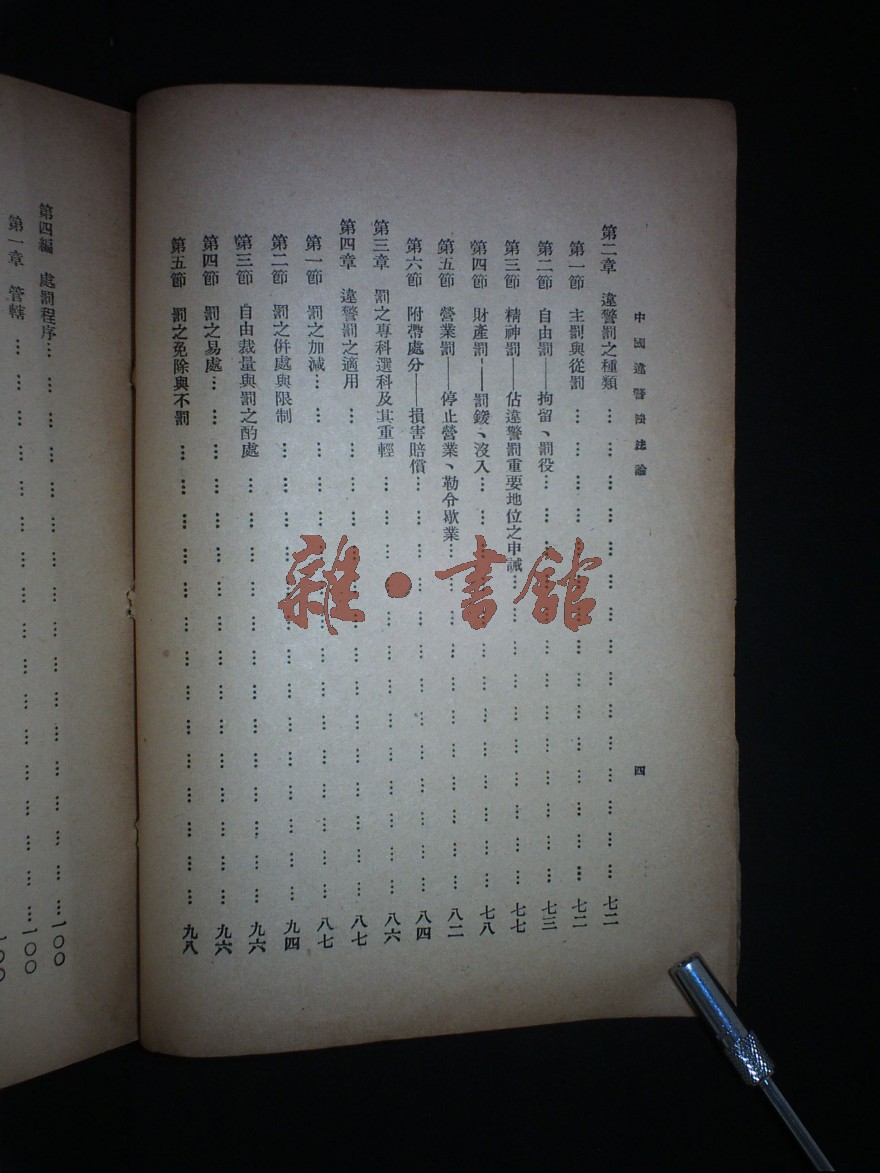 中國違警罰法論
四
第二章　違警罰之種類………………………………………………七二
第一節　主罰與從罰………………………………………………七二
第二節　自由罰——拘留、罰役………………………………………………七三
第三節　精神罰——佔違警罰重要地位之申誡………………………………………………七七
第四節　財產罰——罰鍰、沒入………………………………………………七八
第五節　營業罰——停止營業、勒令歇業………………………………………………八二
第六節　附帶處分——損害賠償………………………………………………八四
第三章　罰之專科選科及其重輕………………………………………………八六
第四章　違警罰之適用………………………………………………八七
第一節　罰之加減………………………………………………八七
第二節　罰之併處與限制………………………………………………九四
第三節　自由裁量與罰之酌處………………………………………………九六
第四節　罰之易處………………………………………………九六
第五節　罰之免除與不罰………………………………………………九八
第四編　處罰程序………………………………………………一〇〇
第一章　管轄………………………………………………一〇〇
一〇〇
雜·書館